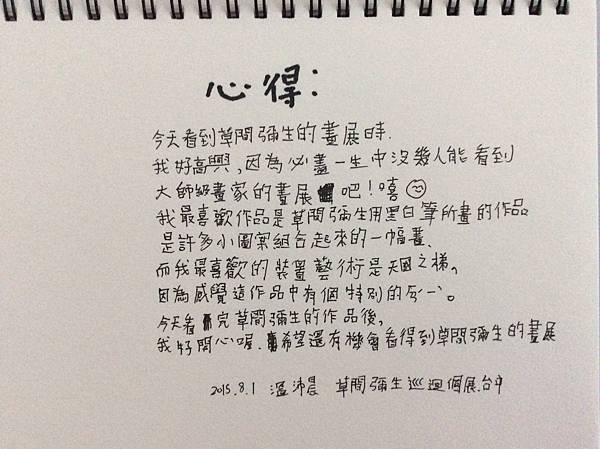 心得:
今天看到草間彌生的畫展時.
我好高興,因為必盡一生中沒幾人能看到
大師級畫家的畫展吧!嘻☺
我最喜歡作品是草間彌生用黑白筆所畫的作品
是許多小圖案組合起來的一幅畫、
而我最喜歡的裝置藝術是天國之梯。
因為感覺這作品中有個特別的ㄢㄧˋ。
今天看完草間彌生的作品後,
我好開心喔.希望還有機會看得到草間彌生的畫展
2015.8.1 溫沛晨 草間彌生巡迴個展.台中